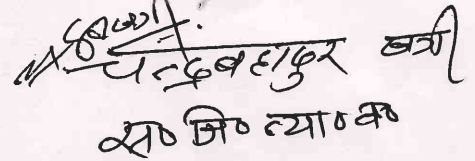 चन्द्रबहादुर खत्री
स० जि० न्या० व०